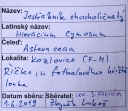 Název: Jestřábník chocholičnatý
Latinský název:
Hieracium Cymosum
Čeleď:
Asteraceae
Lokalita: Kozlovice (F-M)
Říčka u fotbalového hřiště
louka
Datum sběru: Sběratel:
1.6.2019 Zbyněk Lukeš